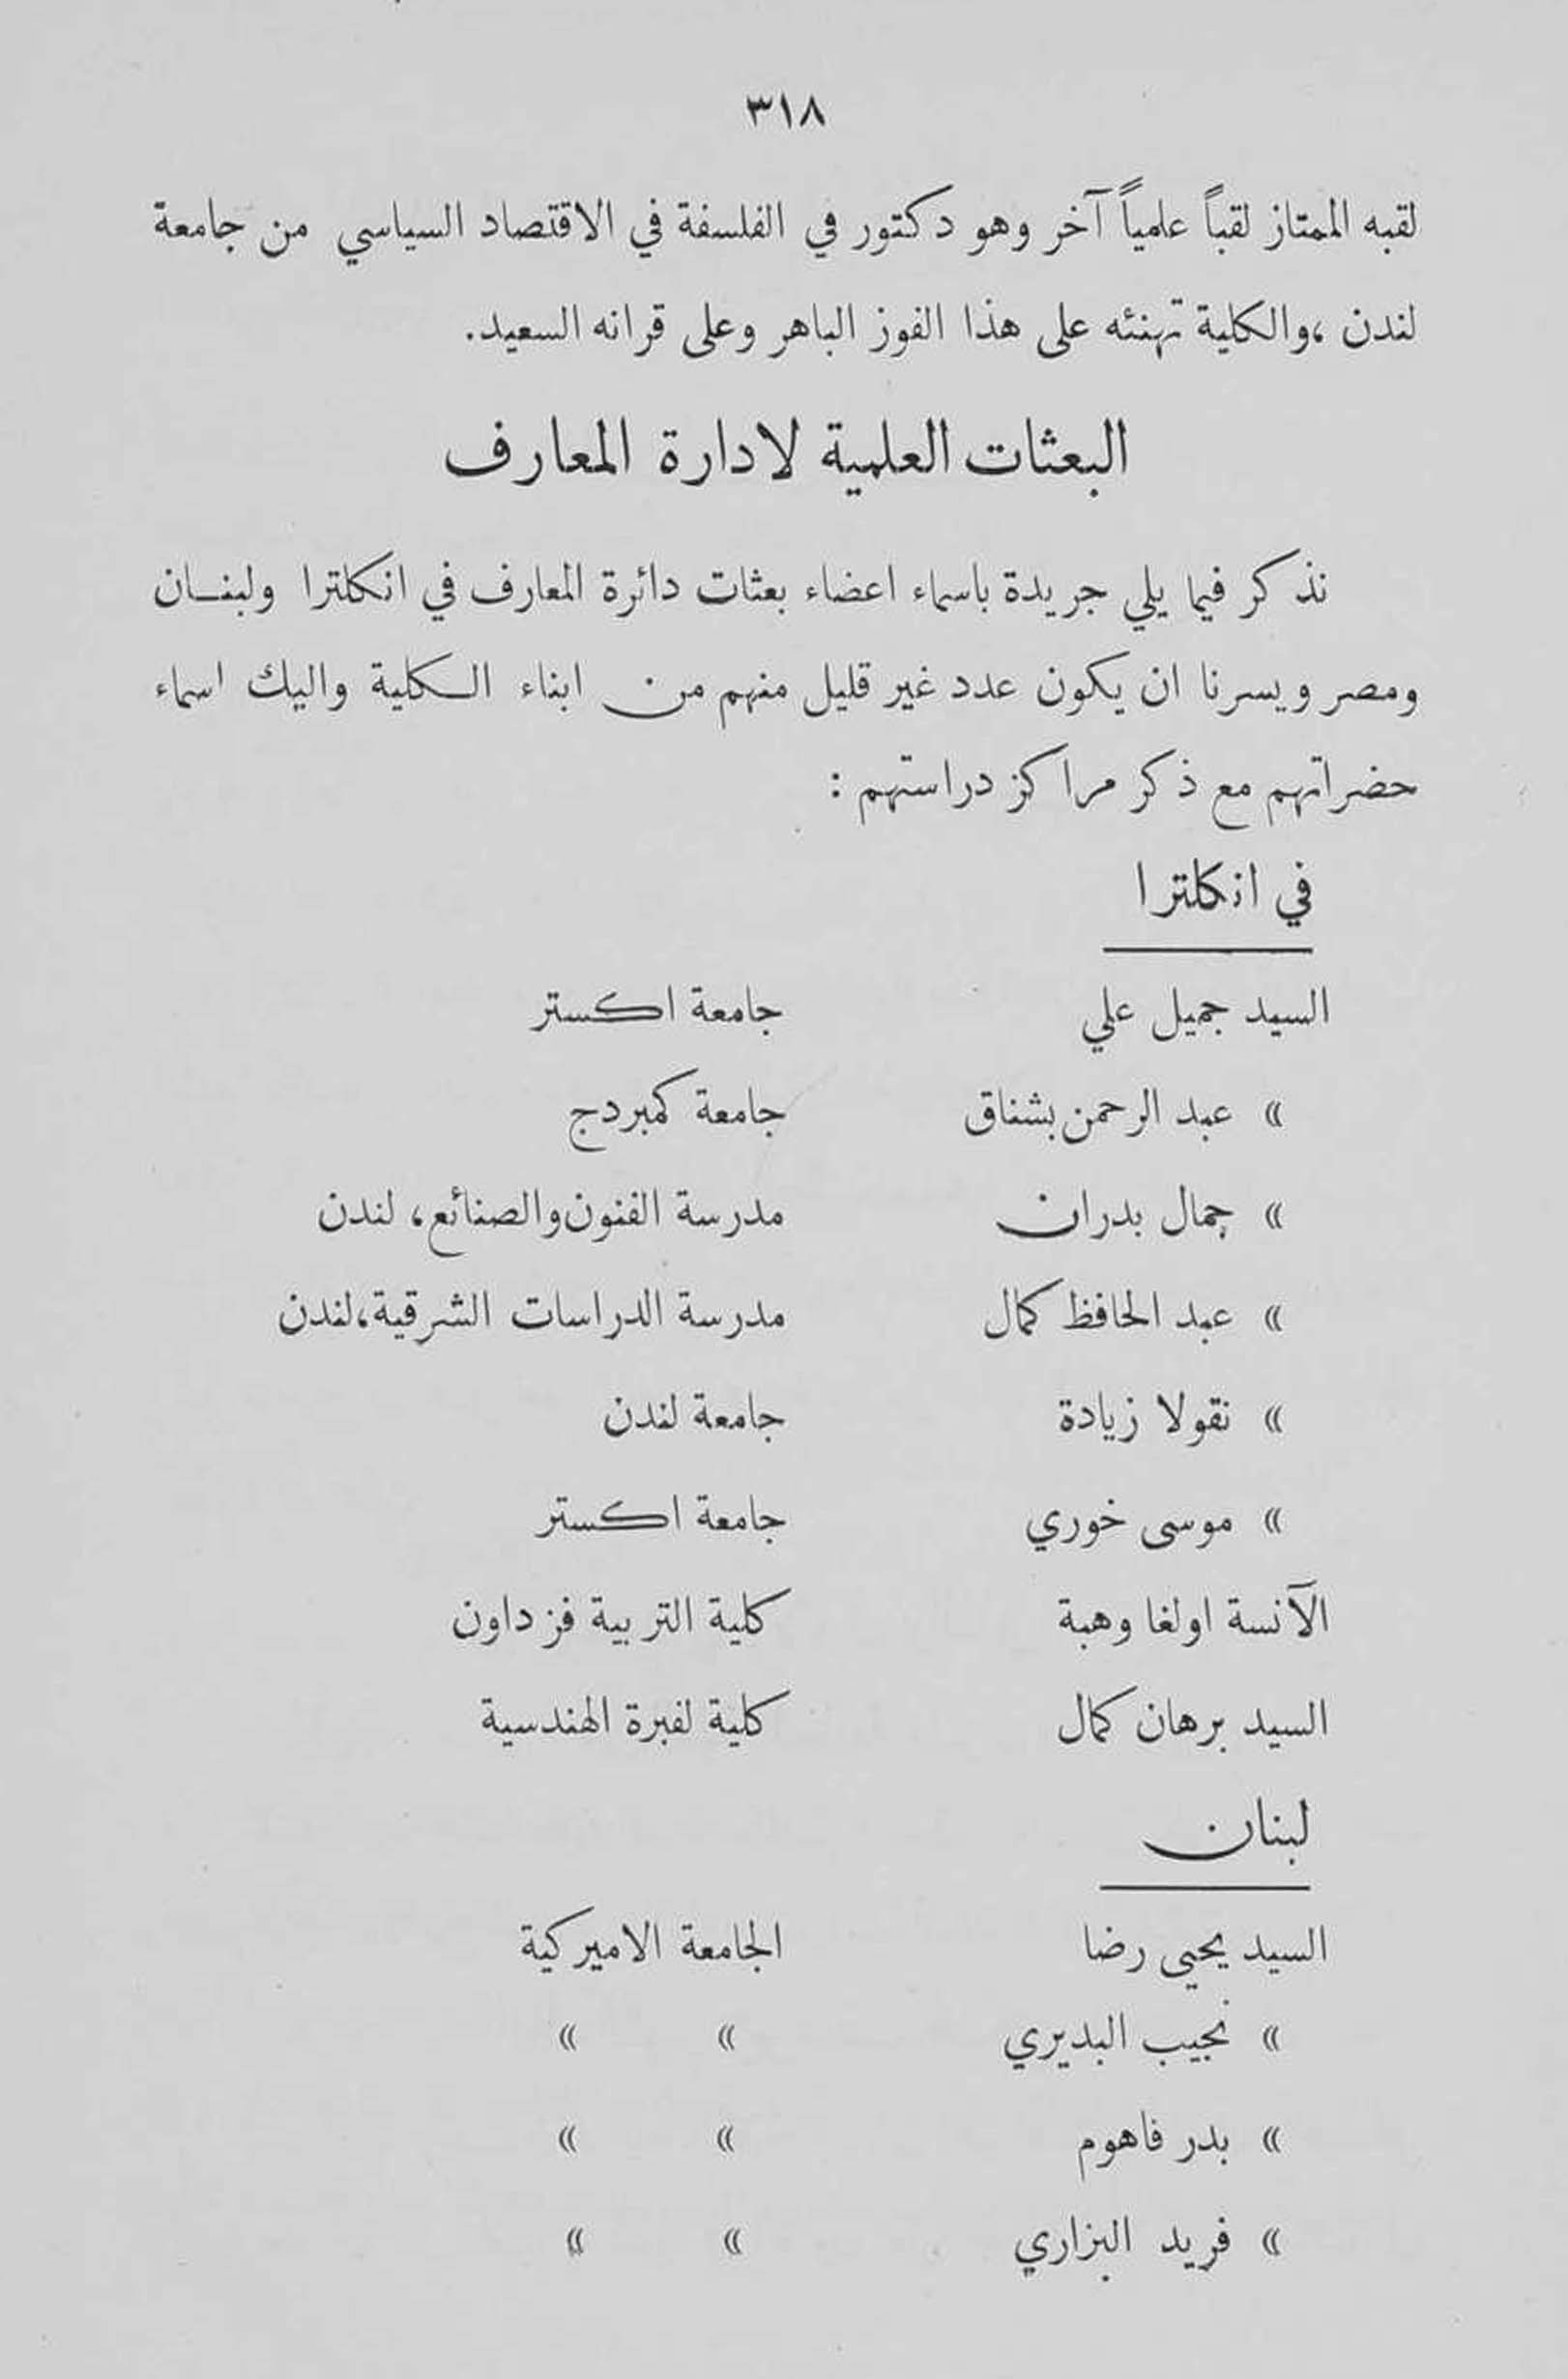 ٣١٨
لقبه الممتاز لقباً علمياً آخر وهو دكتور في الفلسفة في الاقتصاد السياسي من جامعة
لندن ،والكلية تهنئه على هذا الفوز الباهر وعلى قرانه السعيد.
البعثات العلمية لادارة المعارف
نذكر فيما يلي جريدة باسماء اعضاء بعثات دائرة المعارف في انكلترا ولبنان
ومصر ويسرنا ان يكون عدد غير قليل منهم من ابناء الكلية واليك اسماء
حضراتهم مع ذكر مراكز دراستهم :
في انكلترا
السيد جميل علي جامعة اكستر
» عبد الرحمن بشناق جامعة كمبردج
» جمال بدران مدرسة الفنون والصنائع، لندن
» عبد الحافظ كمال مدرسة الدراسات الشرقية،لندن
» نقولا زيادة جامعة لندن
» موسى خوري جامعة اكستر
الآنسة اولغا وهبة كلية التربية فزداون
السيد برهان كمال كلية لفبرة الهندسية
لبنان
السيد يحيى رضا الجامعة الاميركية
» نجيب البديري » »
» بدر فاهوم » »
» فريد البزاري » »